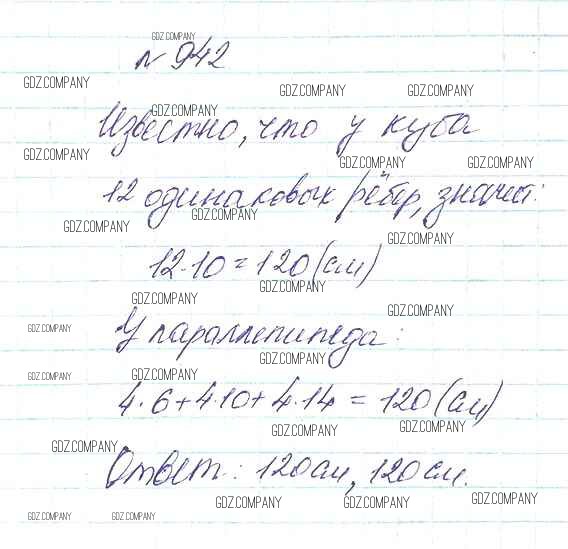 GDZ.COMPANY
№ 942
GDZ.COMPANY
GDZ.COMPANY GDZ.COMPANY
GDZ.COMPANY
Известно, что у куба
GDZ.COMPANY
GDZ.COMPANY GDZ.COMPANY
12 одинаковых рёбер, значит:
GDZ.COMPANY
GDZ.COMPANY
GDZ.COMPANY
12·10=120(см)
GDZ.COMPANY
GDZ.COMPANY
GDZ.COMPANY
У параллепипеда:
GDZ.COMPANY
GDZ.COMPANY
GDZ.COMPANY GDZ.COMPANY
4·6+4·10+4·14=120(см)
GDZ.COMPANY GDZ.COMPANY
GDZ.COMPANY
Ответ: 120см, 120см.
GDZ.COMPANY GDZ.COMPANY GDZ.COMPANY
GDZ.COMPANY GDZ.COMPANY